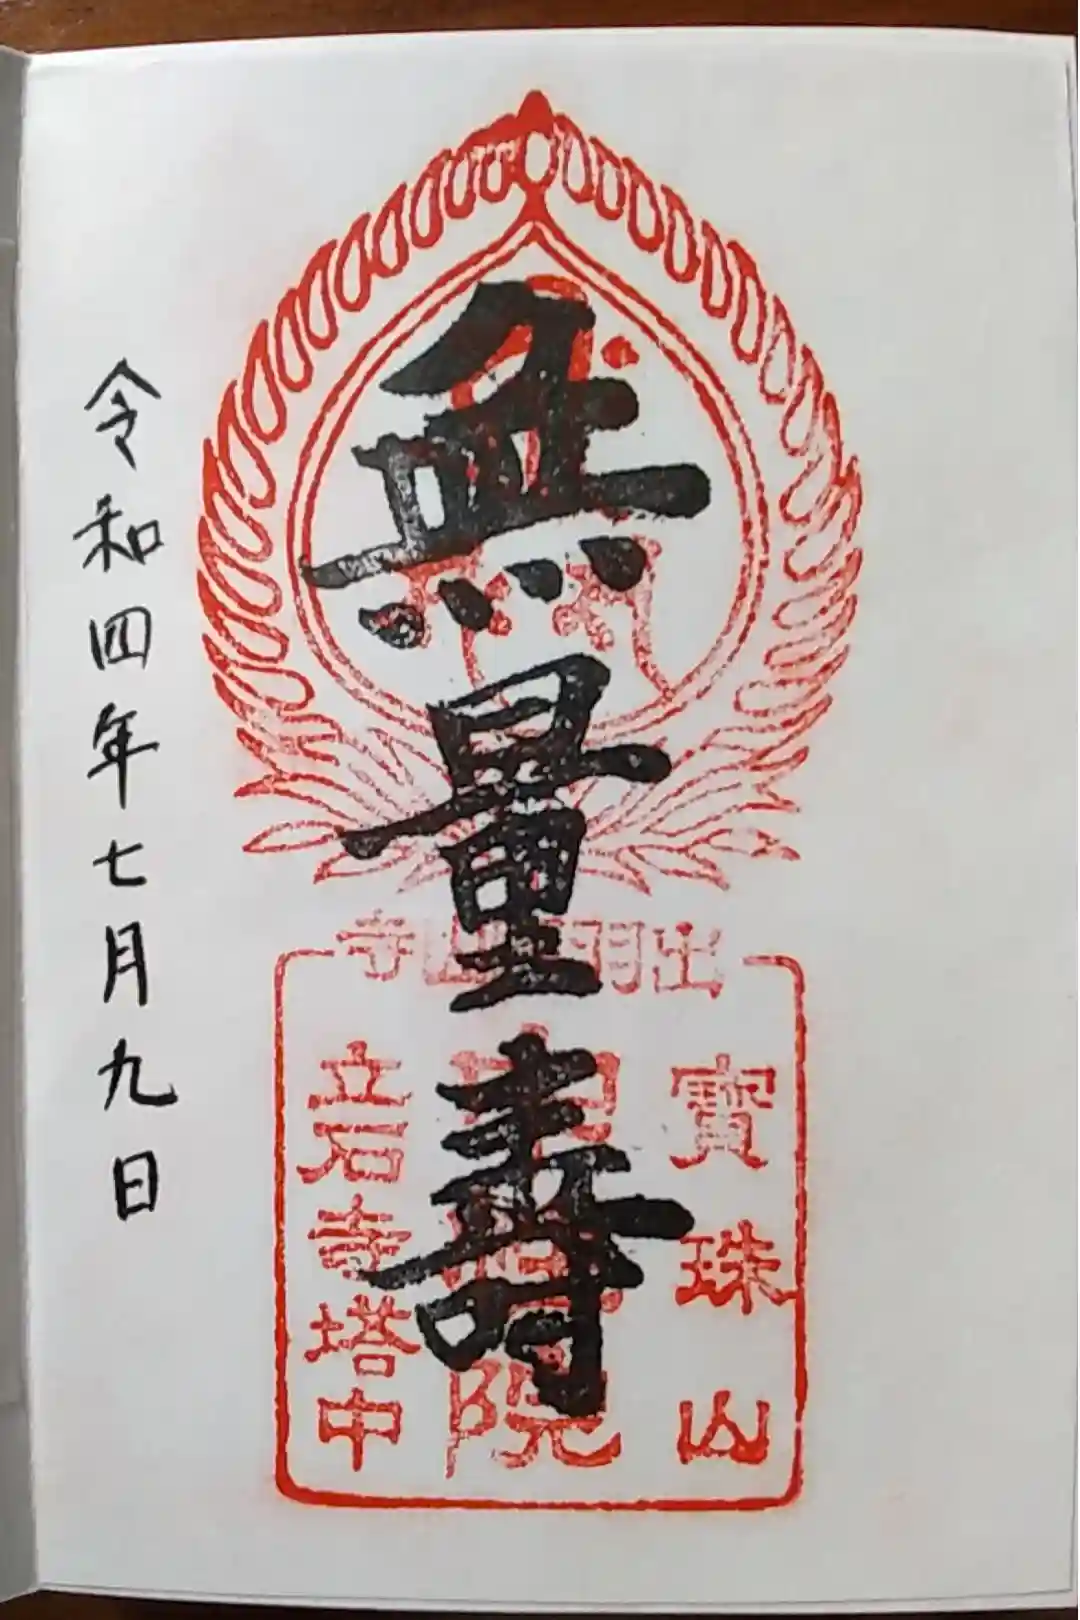 無量壽
令和四年七月九日
出羽山寺
寶珠山
院
立石寺塔中